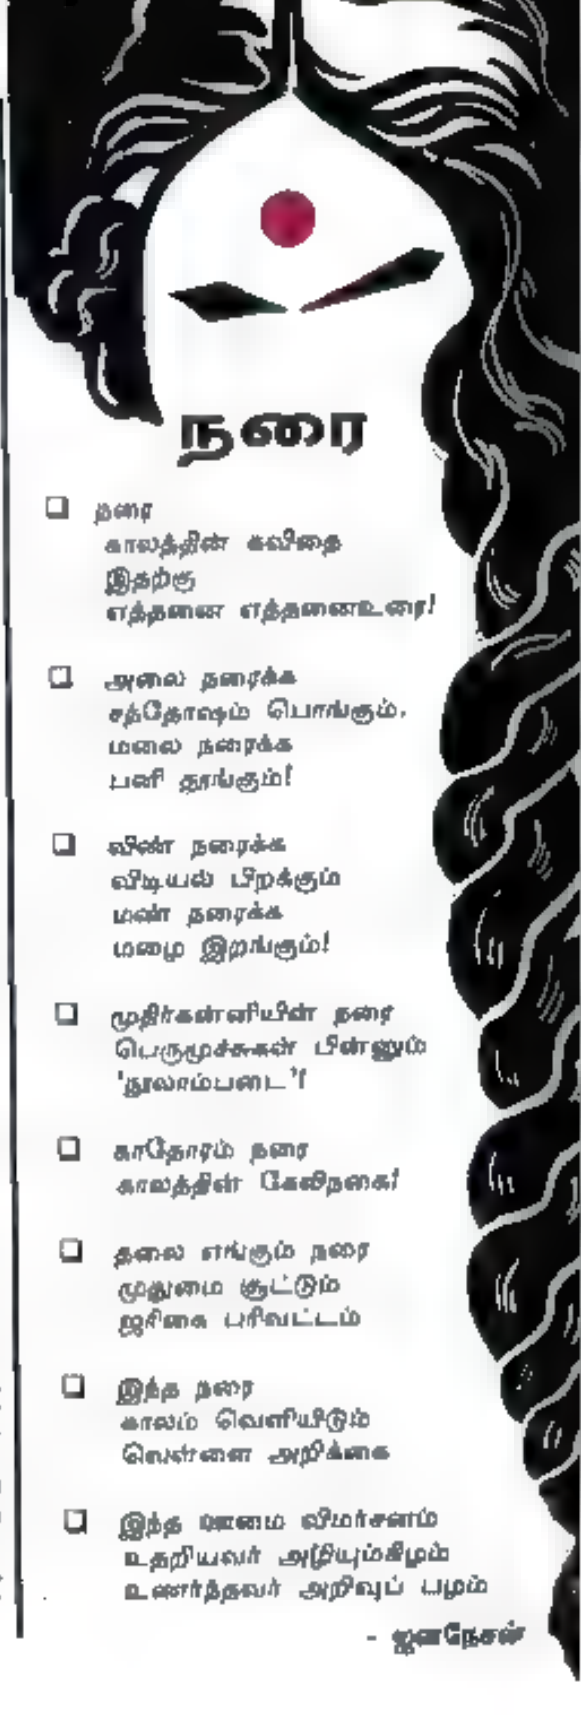 நரை
நரை
காலத்தின் கவிதை
இதற்கு
எத்தனை எத்தனைஉரை!
அலை நரைக்க
சந்தோஷம் பொங்கும்.
மலை நரைக்க
பனி தூங்கும்!
விண் நரைக்க
விடியல் பிறக்கும்
மண் நரைக்க
மழை இறங்கும்!
முதிர்கன்னியின் நரை
பெருமூச்சுகள் பின்னும்
'நூலாம்படை'!
காதோரம் நரை
காலத்தின் கேலிநகை!
தலை எங்கும் நரை
முதுமை சூட்டும்
ஜரிகை பரிவட்டம்
இந்த நரை
காலம் வெளியிடும்
வெள்ளை அறிக்கை
இந்த ஊமை விமர்சனம்
உதறியவர் அழியும்கிழம்
உணர்ந்தவர் அறிவுப் பழம்
- ஜனநேசன்